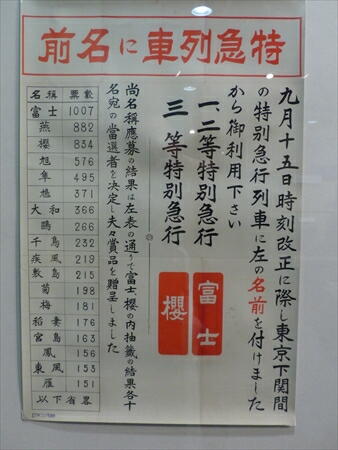 特急列車に名前
九月十五日時刻改正に際し東京下関間
の特別急行列車に左の名前を付けました
から御利用下さい
一、二等特別急行 富士
三等特別急行 櫻
尚名稱應募の結果は左表の通りで富士櫻の内抽籤の結果各十
名宛の當選者を決定し夫々賞品を贈呈しました
名稱 票數
富士 1007
燕 882
櫻 834
旭 576
隼 495
旭 371
大和 366
鷗 266
千鳥 232
疾風 219
敷島 215
菊 198
梅 181
稻妻 176
宮島 163
鳳 156
東風 153
雁 151
以下省畧